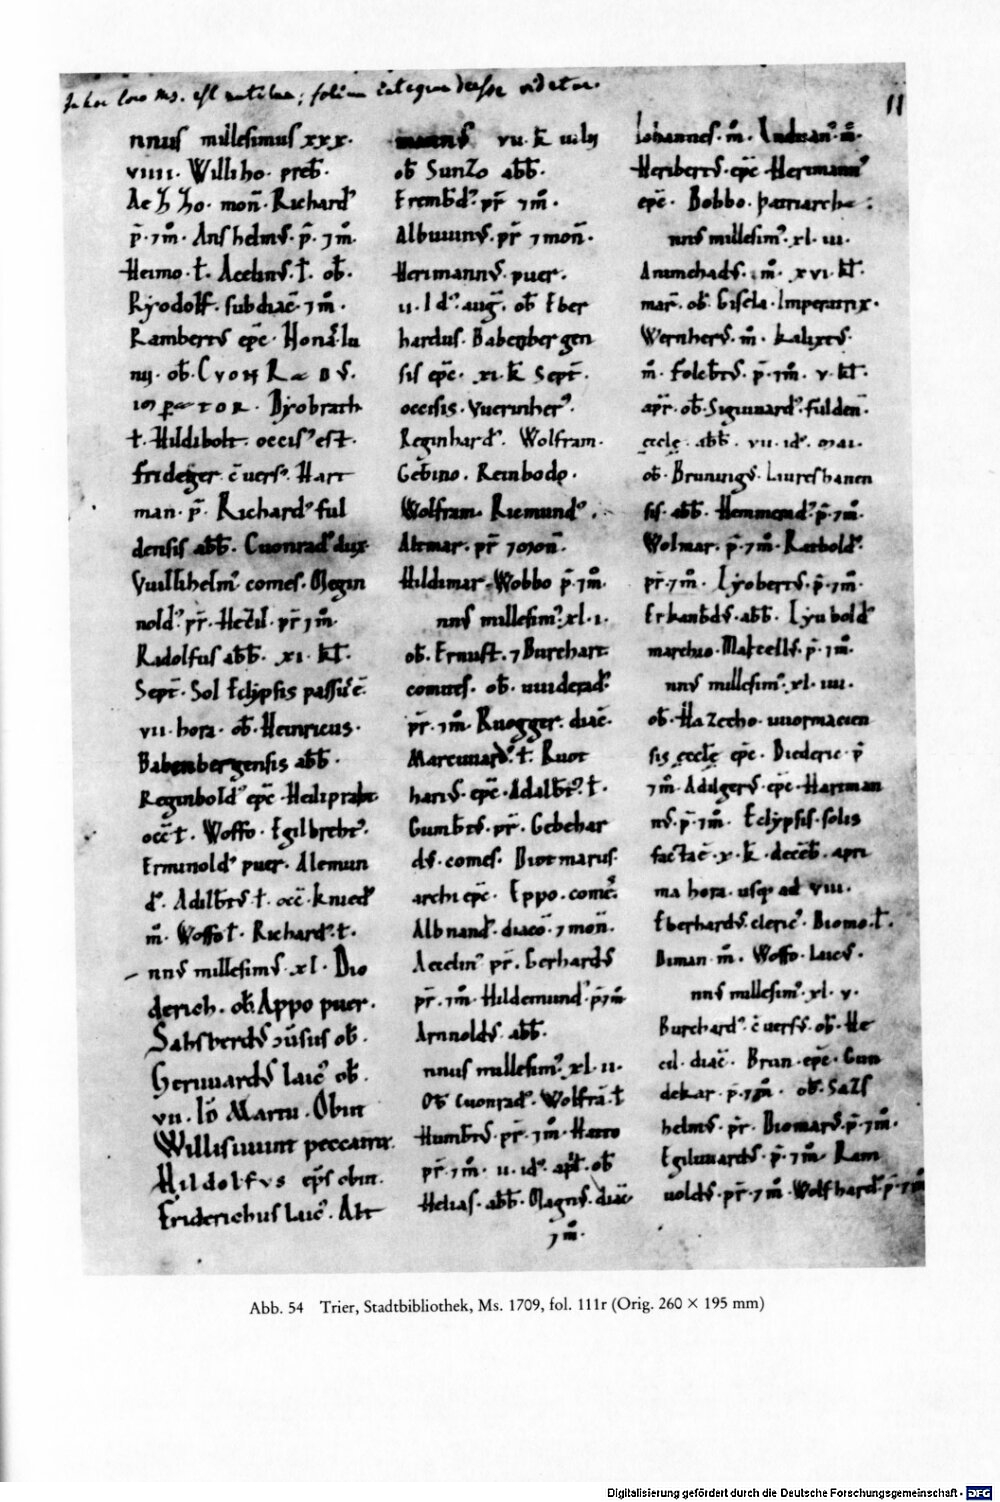 In hoc loco Ms. est mutilum; folium integrum deesse videtur.
11
nnuſ milleſimuſ xxx.
viiii. Williho. preb̄.
Aeżżo. mon̄. Richard᾽
p̄. ⁊m̄. Anſhelm᾽. p̄. ⁊m̄.
Heimo. t̄. Acelin᾽. t̄. ob̄.
Ryodolf. ſubdiac̄. ⁊m̄.
Rambert᾽ ep̄c. Hon̄. Iu
nij. ob̄. CVONRaD᾽.
InpaTOR. Dyobrath
t. Hildibolt. occiſ᾽ eſt.
frideger. c̄uerſ᾽. Hart
man. p̄. Richard᾽ ful
denſis abb̄. Cuonrad᾽ dux
Vuillihelm᾽ comeſ. Megin
nold᾽. pr̄. Hecil. pr̄ ⁊m̄.
Radolfuſ abb̄. xi. kł.
Sept̄. Sol Eclypſis paſſ᾽ē.
vii. hora. ob̄. Heinricus.
Babenbergenſis abb̄.
Reginbold᾽ ep̄c. Heilipraht
occ̄. t. Woffo. Egilbreht᾽.
Erminold᾽ puer. Alemun
d᾽. Adilb̄t᾽ t. occ̄. knied᾽
m̄. Woffo t̄. Richard᾽. t.
nn᾽ milleſim᾽. xl. Dio
derich. ob̄. Appo puer.
Sahſberd᾽ ↄ̄uſuſ ob̄.
Geruuard᾽ laic᾽ ob̄.
vii. Id̄ Martii. Obiit
Williſuuint peccatrix.
Hildolfvs ep̄ſ obiit.
Friderichuſ Luc᾽. Alt
mann᾽ vii. k̄ iulij
ob̄ Sunzo abb̄.
Eremb̄d᾽. pr̄ ⁊m̄.
Albuuin᾽. pr̄ ⁊mon̄.
Herimann᾽. puer.
ii. Id᾽. aug̅. ob̄ Eber
hardus. Babenbergen
ſiſ ep̄c. xi. k̄ Sept̄.
occiſis. Vuerinher᾽.
Reginhard᾽. Wolfram.
Geb̄ino. Reinbodo.
Wolfram. Riemund᾽.
Altmar. pr̄ ⁊mon̄.
Hildimar. Wobbo p̄. ⁊m̄.
nn᾽ milleſim᾽. xl. i.
ob̄. Ernuſt. ⁊ Burchart
comiteſ. ob̄. uuiderad᾽.
pr̄. ⁊m̄. Ruogger. diac̄.
Marcuuard᾽. t̄. Ruot
hari᾽. ep̄c. Adalb̄t᾽. t.
Gumb̄t᾽. pr̄. Gebehar
d᾽. comeſ. Diotmarus.
archiep̄c. Eppo. comeſ.
Albnand᾽. diaco̅. ⁊mon̄.
Acelin᾽ pr̄. Gerhard᾽
pr̄. ⁊m̄. Hildemund᾽ p̄⁊m̄
Arnnold᾽. abb̄.
nnuſ milleſim᾽. xl. ii.
Ob̄ Cuonrad᾽. Wolfrā. t̄
Humb̄t᾽. pr̄. ⁊m̄. Hatto
pr̄. ⁊m̄. ii. id᾽. apł. ob̄
Heliaſ. abb̄. Magn᾽. diac̄
⁊m̄.
Iohanneſ. m̄. m̄.
Heribert᾽. ep̄c Herimann᾽
ep̄c. Bobbo. patriarcha:
nn᾽ milleſim᾽. xl. iii.
Animchad᾽. m̄. xvi. kł.
mar̄. ob̄. Giſela. Imperatrix.
Wernher᾽. m̄. kalixt᾽.
m̄. Folcb̄t᾽. p̄. ⁊m̄. v. kł.
apr̄. ob̄. Siguuard᾽. fulden̄.
ęccłę. abb̄. vii. id᾽. mai.
ob̄. Bruning᾽. Laureſhanen
ſiſ. abb̄. Hemmond᾽. p̄. ⁊m̄.
Wolmar. p̄. ⁊m̄. Ratbold᾽.
pr̄. ⁊m̄. Lyobert᾽. p̄. ⁊m̄.
Erkanb̄d᾽. abb̄. Lyubold᾽
marchio. Marcell᾽. p̄. ⁊m̄.
nn᾽ milleſim᾽. xl. iiii.
ob̄. Hazecho. uuormacien
ſiſ ęccłę ep̄c. Diederic. p̄
⁊m̄. Adilger᾽. ep̄c. Hartman
n᾽. p̄. ⁊m̄. Eclypſiſ. ſolis
facta ē. x. k̄. decēb̄. apri
ma hora. uſq᾽ ad viii.
Eberhard᾽. cleric᾽. Diomo. t̄.
Diman. m̄. Woffo. Laic᾽.
nn᾽ milleſim᾽. xl. v.
Burchard᾽. c̄uerſ᾽. ob̄. He
cil. diac̄. Brun. ep̄c. Gun
dekar. p̄. ⁊m̄. ob̄. Salſ
helm᾽. pr̄. Diomar᾽. p̄. ⁊m̄.
Egiluuard᾽. p̄. ⁊m̄. Ram
uold᾽. pr̄. ⁊m̄. Wolfhard᾽. p̄. ⁊m̄
Abb. 54 Trier, Stadtbibliothek, Ms. 1709, fol. 111r (Orig. 260 × 195 mm)
Digitalisierung gefördert durch die Deutsche Forschungsgemeinschaft - DFG